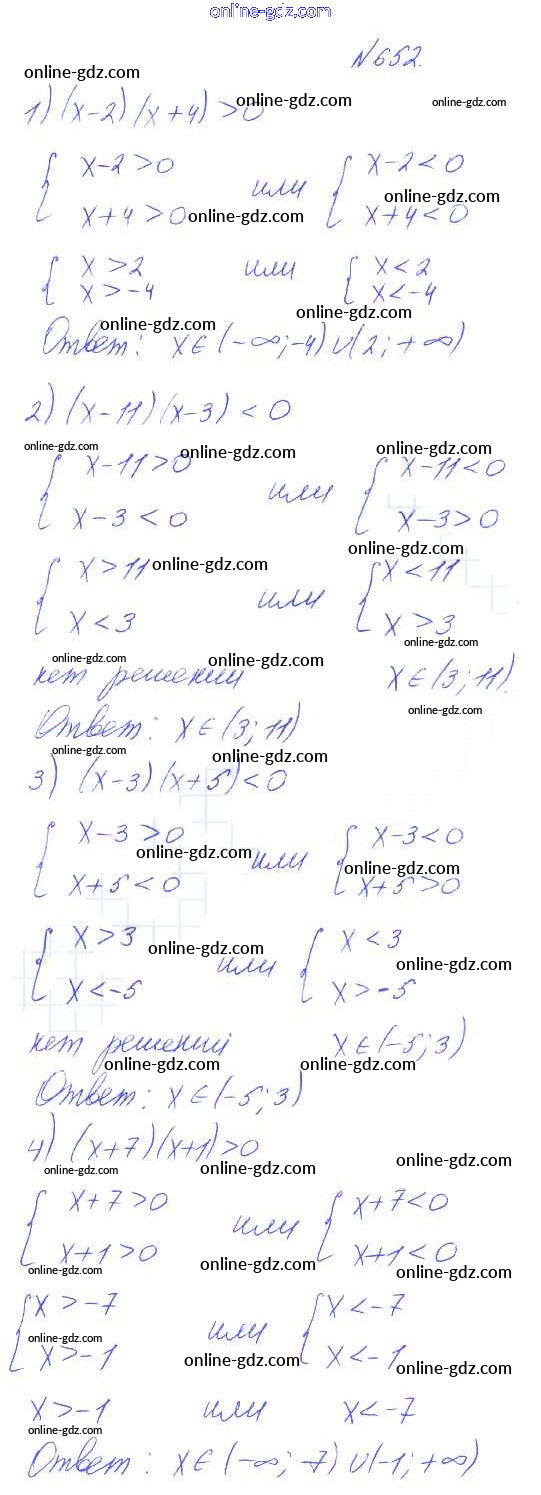 online-gdz.com
N652.
online-gdz.com
1) (x-2)(x+4)>0 online-gdz.com online-gdz.com
{ x-2>0 или { x-2<0
online-gdz.com
x+4>0 online-gdz.com x+4<0
{ x>2 или { x<2
x>-4 x<-4
online-gdz.com
online-gdz.com
Ответ: x∈(-∞;-4)∪(2;+∞)
2) (x-11)(x-3)<0
online-gdz.com online-gdz.com online-gdz.com
{ x-11>0 или { x-11<0
x-3<0 x-3>0
online-gdz.com
{ x>11 online-gdz.com или { x<11
x<3 x>3
online-gdz.com
online-gdz.com online-gdz.com
нет решений x∈(3;11).
online-gdz.com
Ответ: x∈(3;11)
online-gdz.com online-gdz.com
3) (x-3)(x+5)<0
{ x-3>0 или { x-3<0
online-gdz.com online-gdz.com
x+5<0 x+5>0
{ x>3 online-gdz.com или { x<3
online-gdz.com
x<-5 x>-5
нет решений x∈(-5;3)
online-gdz.com online-gdz.com
Ответ: x∈(-5;3)
4) (x+7)(x+1)>0
online-gdz.com online-gdz.com online-gdz.com
{ x+7>0 или { x+7<0
x+1>0 x+1<0
online-gdz.com online-gdz.com online-gdz.com
{ x>-7 или { x<-7
online-gdz.com
x>-1 x<-1
online-gdz.com online-gdz.com
x>-1 или x<-7
online-gdz.com online-gdz.com online-gdz.com
Ответ: x∈(-∞;-7)∪(-1;+∞)